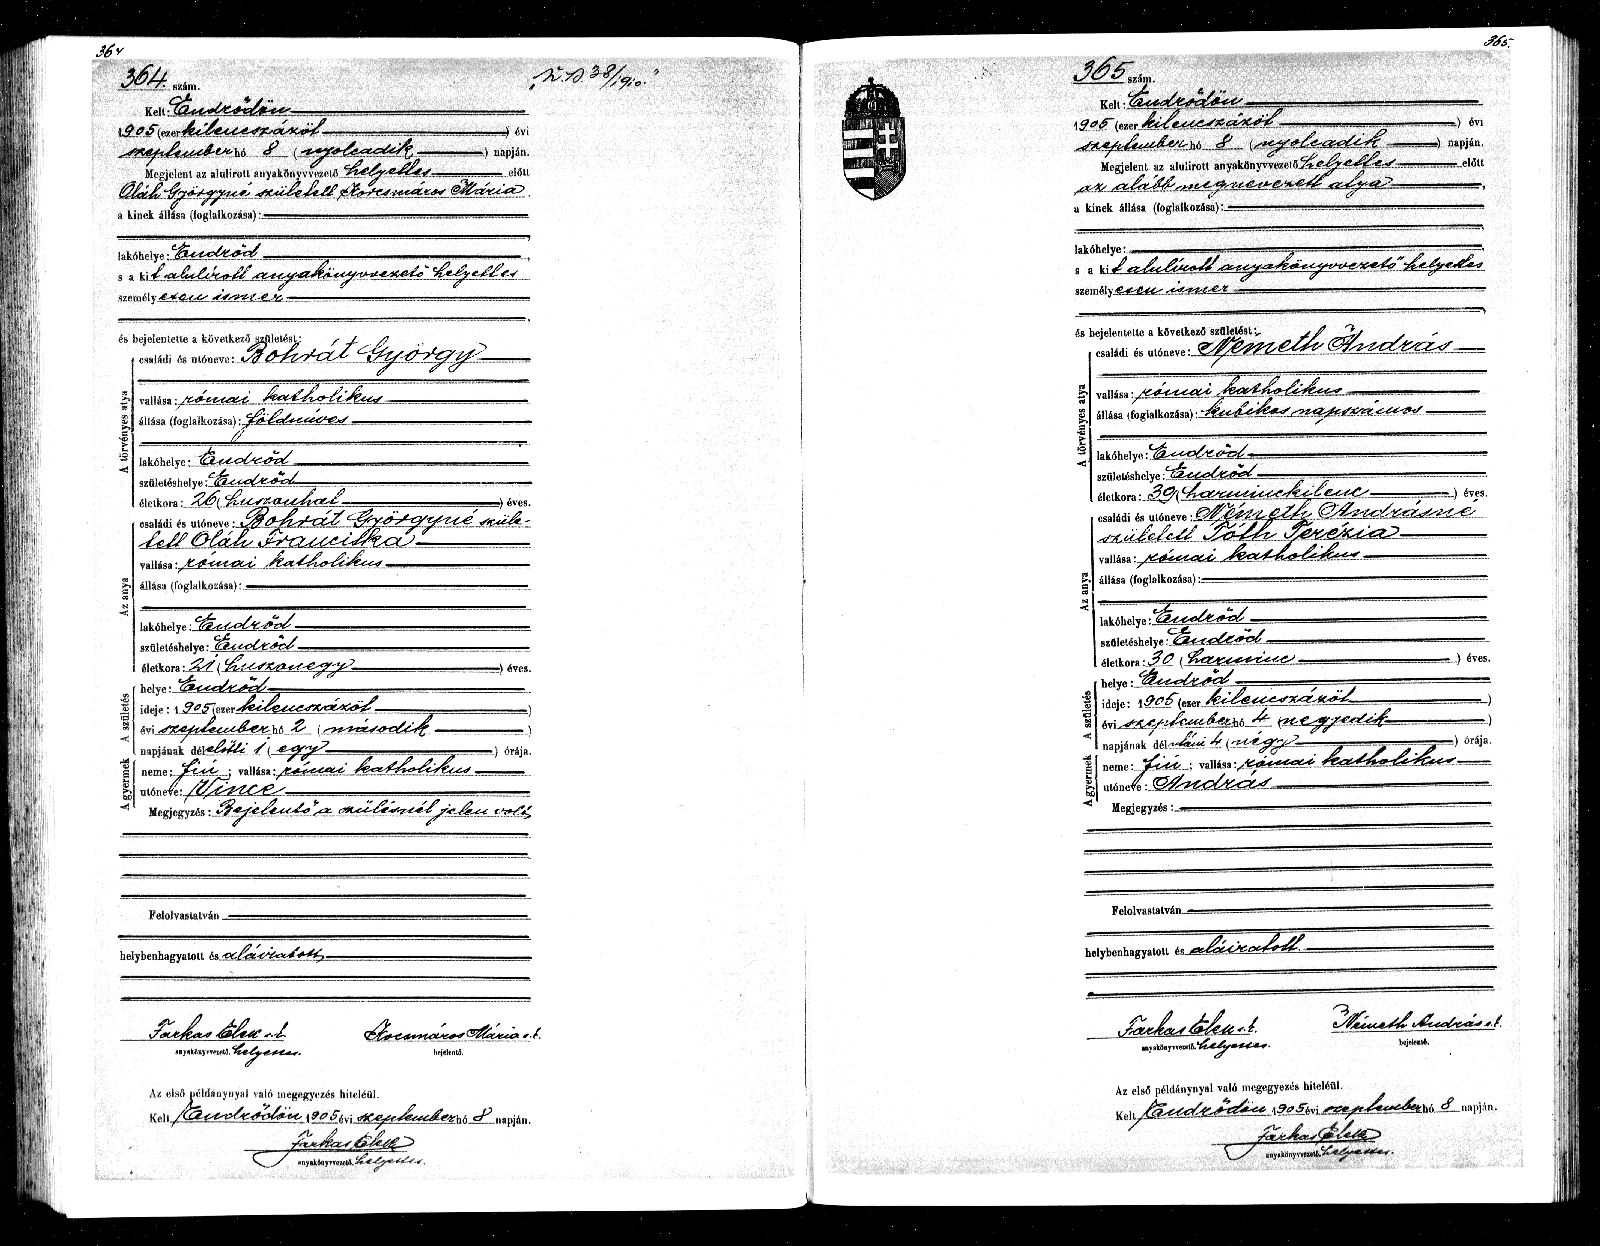 364
364. szám.
Kelt: Endrődön
1905 (ezer kilencszázöt) évi
szeptember hó 8 (nyolcadik) napján.
Megjelent az alulirott anyakönyvvezető helyettes előtt
Oláh Györgyné született Korcsmáros Mária
a kinek állása (foglalkozása):
lakóhelye: Endrőd
s a kit alulírott anyakönyvvezető helyettes
személyesen ismer
és bejelentette a következő születést:
A törvényes atya
családi és utóneve: Bohrát György
vallása: római katholikus
állása (foglalkozása): földmíves
lakóhelye: Endrőd
születéshelye: Endrőd
életkora: 26 (huszonhat) éves.
Az anya
családi és utóneve: Bohrát Györgyné szüle-
tett Oláh Franciska
vallása: római katholikus
állása (foglalkozása):
lakóhelye: Endrőd
születéshelye: Endrőd
életkora: 21 (huszonegy) éves.
A születés
helye: Endrőd
ideje: 1905 (ezer kilencszázöt)
évi szeptember hó 2 (második)
napjának délelőtti 1 (egy) órája.
A gyermek
neme: fiú; vallása: római katholikus
utóneve: Vince
Megjegyzés: Bejelentő a szülésnél jelen volt
Felolvastatván
helybenhagyatott és aláiratott
Farkas Elek s.k. Kocsmáros Mária s.k.
anyakönyvvezető. helyettes. bejelentő.
Az első példánynyal való megegyezés hiteléül.
Kelt Endrődön 1905 évi szeptember hó 8 napján.
Farkas Elek
anyakönyvvezető. helyettes.
365.
365 szám.
Kelt: Endrődön
1905 (ezer kilencszázöt) évi
szeptember hó 8 (nyolcadik) napján.
Megjelent az alulirott anyakönyvvezető helyettes előtt
az alább megnevezett atya
a kinek állása (foglalkozása):
lakóhelye:
s a kit alulírott anyakönyvvezető helyettes
személyesen ismer
és bejelentette a következő születést:
A törvényes atya
családi és utóneve: Németh András
vallása: római katholikus
állása (foglalkozása): kubikos napszámos
lakóhelye: Endrőd
születéshelye: Endrőd
életkora: 39 (harminckilenc) éves.
Az anya
családi és utóneve: Németh Andrásné
született Tóth Terézia
vallása: római katholikus
állása (foglalkozása):
lakóhelye: Endrőd
születéshelye: Endrőd
életkora: 30 (harminc) éves.
A születés
helye: Endrőd
ideje: 1905 (ezer kilencszázöt)
évi szeptember hó 4 (negyedik)
napjának délutáni 4 (négy) órája.
A gyermek
neme: fiú; vallása: római katholikus
utóneve: András
Megjegyzés:
Felolvastatván
helybenhagyatott és aláiratott
Farkas Elek s.k. Németh András s.k.
anyakönyvvezető. helyettes. bejelentő.
Az első példánynyal való megegyezés hiteléül.
Kelt Endrődön 1905 évi szeptember hó 8 napján.
Farkas Elek
anyakönyvvezető. helyettes.